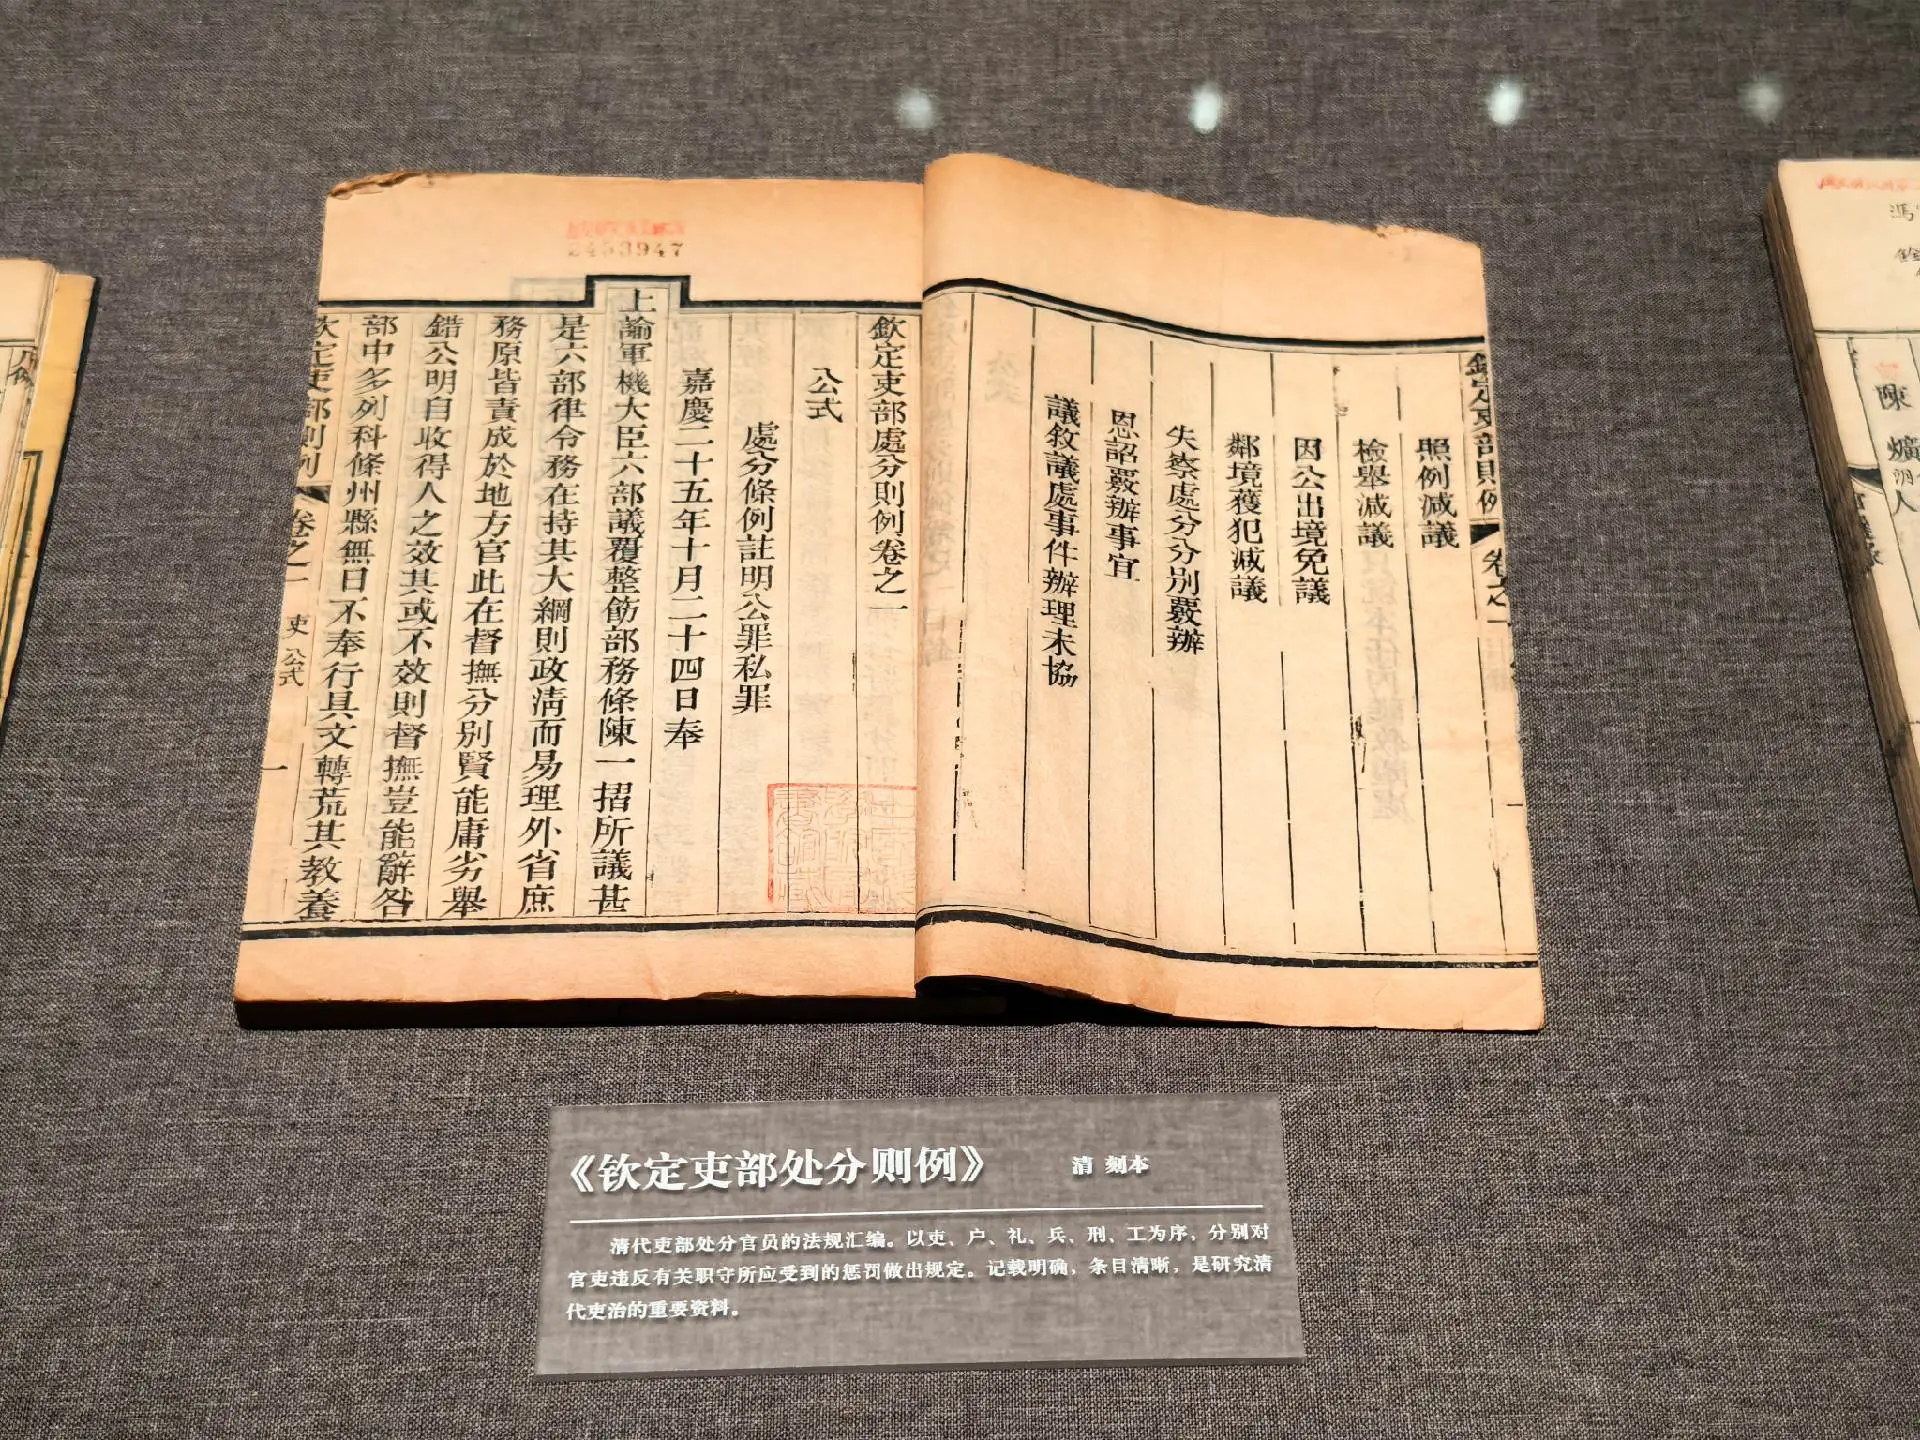 欽定吏部則例
卷之一
照例減議
檢舉減議
因公出境免議
鄰境獲犯減議
失察處分分別覈辦
恩詔覈辦事宜
議敘議處事件辦理未協
2453947
欽定吏部處分則例卷之一
公式
處分條例註明公罪私罪
嘉慶二十五年十月二十四日奉
上諭軍機大臣六部議覆整飭部務條陳一摺所議甚
是六部律令務在持其大綱則政清而易理外省庶
務原皆責成於地方官此在督撫分別賢能庸劣舉
錯公明自收得人之效其或不效則督撫豈能辭咎
部中多列科條州縣無日不奉行具文轉荒其教養
欽定吏部則例
卷之一
吏 公式
一
陳
人
《钦定吏部处分则例》 清 刻本
清代吏部处分官员的法规汇编。以吏、户、礼、兵、刑、工为序，分别对
官吏违反有关职守所应受到的惩罚做出规定。记载明确，条目清晰，是研究清
代吏治的重要资料。